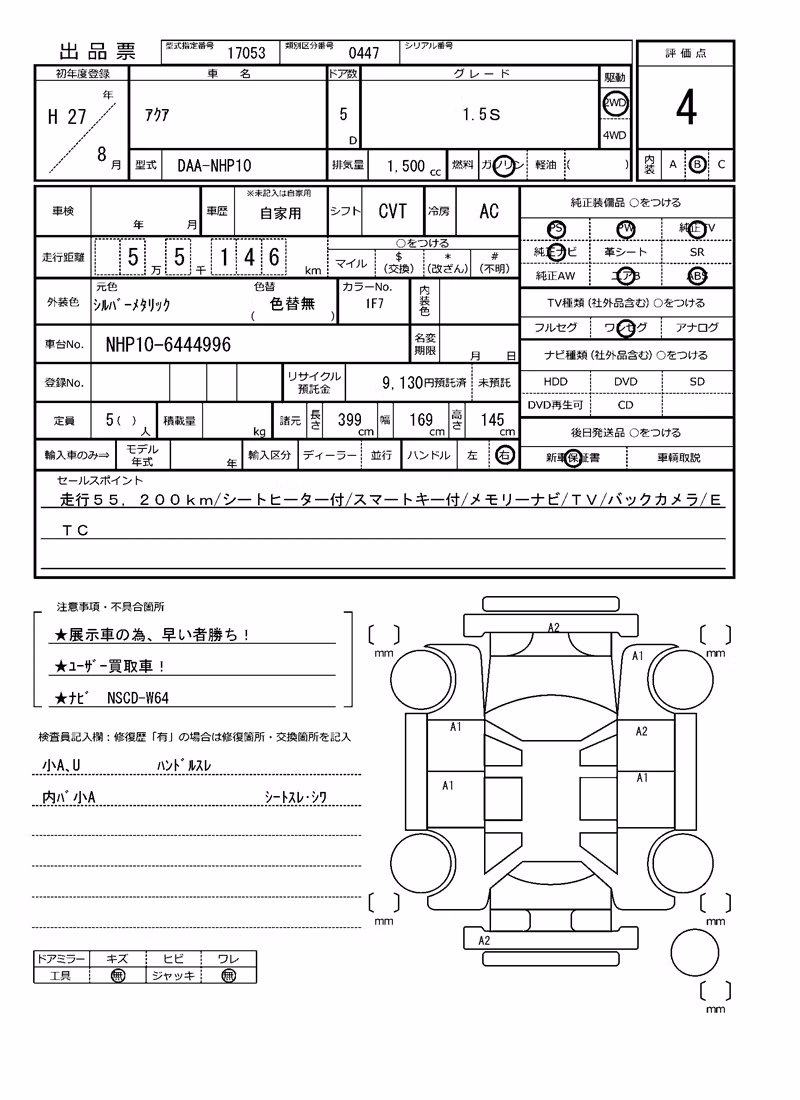 出品票 型式指定番号 17053 類別区分番号 0447 シリアル番号
評価点
初年度登録 車名 ドア数 グレード 駆動
H 27 年 8 月 アクア 5 D 1.5S 2WD 4WD 4
型式 DAA-NHP10 排気量 1,500 cc 燃料 ガソリン 軽油 ( ) 内装 A B C
車検 年 月 車歴 ※未記入は自家用 自家用 シフト CVT 冷房 AC
純正装備品 ○をつける
PS PW 純正TV
走行距離 5 万 5 千 1 4 6 km ○をつける
マイル $ (交換) * (改ざん) # (不明)
純正ナビ 革シート SR
純正AW エアB ABS
外装色 元色 シルバーメタリック 色替 ( 色替無 ) カラーNo. 1F7 内装色
TV種類(社外品含む)○をつける
フルセグ ワンセグ アナログ
車台No. NHP10-6444996 名変期限 月 日
ナビ種類(社外品含む)○をつける
登録No. リサイクル預託金 9,130円預託済 未預託
HDD DVD SD
DVD再生可 CD
定員 5( ) 人 積載量 kg 諸元 長さ 399 cm 幅 169 cm 高さ 145 cm
後日発送品 ○をつける
輸入車のみ⇒ モデル年式 年 輸入区分 ディーラー 並行 ハンドル 左 右
新車保証書 車輌取説
セールスポイント
走行55,200km/シートヒーター付/スマートキー付/メモリーナビ/TV/バックカメラ/E
TC
注意事項・不具合箇所
★展示車の為、早い者勝ち!
★ユーザー買取車!
★ナビ NSCD-W64
検査員記入欄:修復歴「有」の場合は修復箇所・交換箇所を記入
小A、U ハンドルスレ
内バ小A シートスレ・シワ
ドアミラー キズ ヒビ ワレ
工具 無 ジャッキ 無
A2
mm
A1
mm
A1
A2
A1
A1
mm
mm
A2
mm